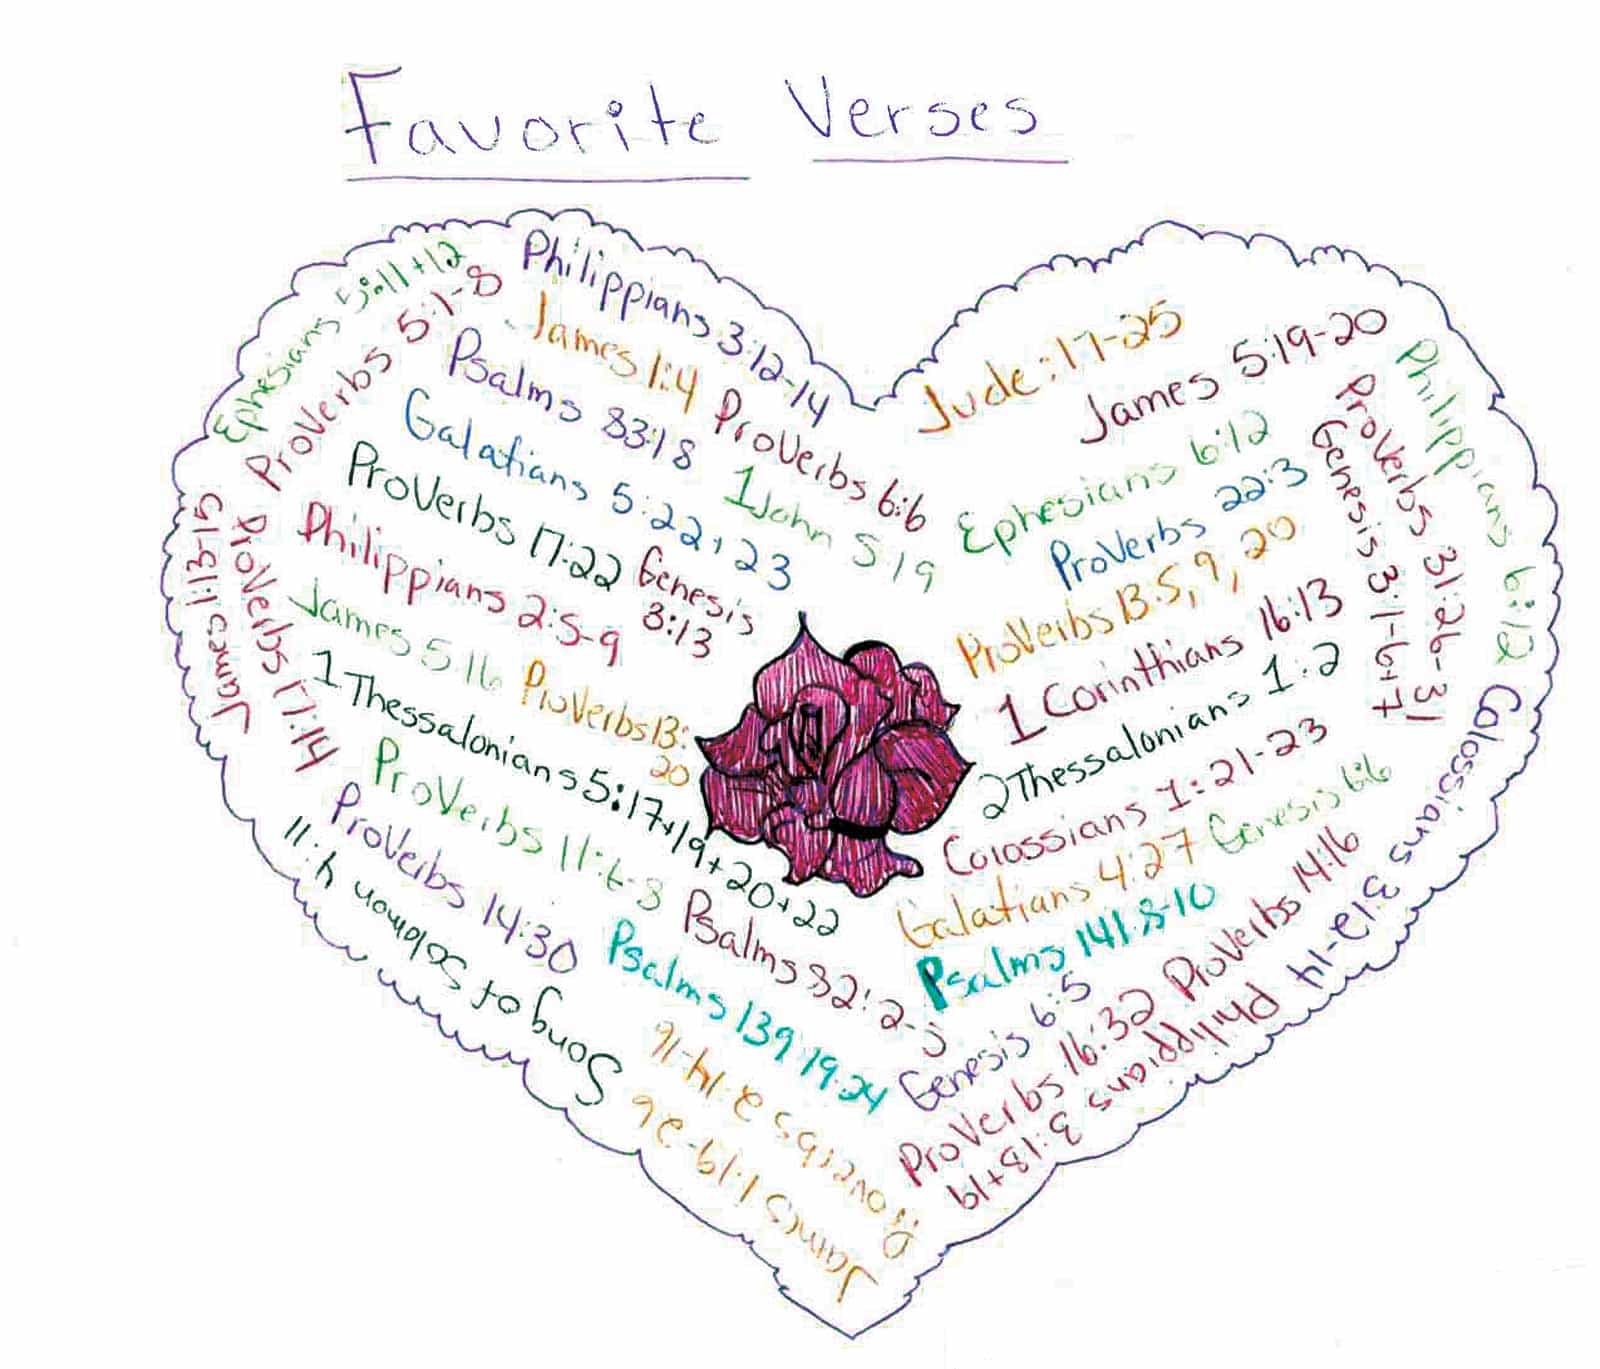 Favorite Verses
Ephesians 5:11+12
Proverbs 5:1-8
Philippians 3:12-14
James 1:4
Proverbs 6:6
Psalms 83:18
1 John 5:19
Galatians 5:22+23
Proverbs 17:22
Genesis
3:13
Philippians 2:5-9
James 5:16
Proverbs 13:
20
1 Thessalonians 5:17+19+20+22
Proverbs 17:14
James 1:13-15
Proverbs 11:
Proverbs 14:30
Psalms 32:2-
Psalms 139:19-24
Song of Solomon 4:11
Proverbs 2:14-16
James 1:19-26
Jude:17-25
James 5:19-20
Ephesians 6:12
Proverbs 22:3
Proverbs 13:5, 9, 20
1 Corinthians 16:13
2 Thessalonians 1:2
Colossians 1:21-23
Galatians 4:27
Genesis 6:6
Psalms 141:8-10
Genesis 6:5
Proverbs 14:16
Proverbs 16:32
Philippians 3:18+19
Colossians 3:12-14
Philippians 6:12
Proverbs 31:26-31
Genesis 3:1-6+7